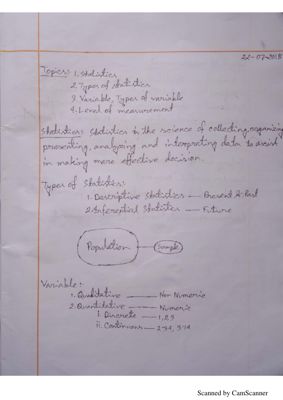 22-07-2018
Topics: 1. Statistics
2. Types of statistics
3. Variable, Types of variable
4. Level of measurement
Statistics: Statistics is the science of collecting, organizing
presenting, analyzing and interpreting data to assist
in making more effective decision.
Types of Statistics:
1. Descriptive Statistics — Present & Past
2. Inferential Statistics — Future
Population — Sample
Variable:
1. Qualitative — Non Numeric
2. Quantitative — Numeric
i. Discrete — 1,2,3
ii. Continuous —
Scanned by CamScanner